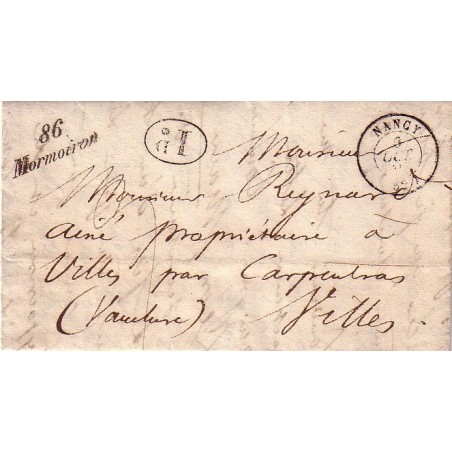 86
Mormoiron
NANCY
OCT
Monsieur
Monsieur Reynard
ainé propriétaire à
Villes par Carpentras
(Vaucluse) Villes